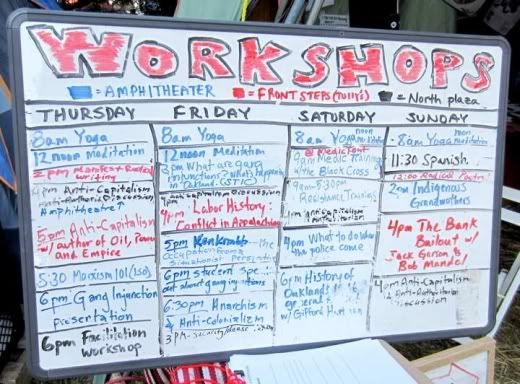 WORKSHOPS
= AMPHITHEATER
= FRONT STEPS (Tully's)
= North plaza
THURSDAY
8am Yoga
12noon Meditation
2pm Manifesto & Radical writing
4pm Anti-Capitalism
Amphitheatre ↑
5pm Anti-Capitalism
w/ author of Oil, Power
and Empire
5:30 Marxism 101 (ISO)
6pm Gang Injunction
presentation
6pm Facilitation
workshop
FRIDAY
8am Yoga
12noon Meditation
3pm What are gang
injunctions & what's happening
in Oakland.
4pm
Labor History:
Conflict in Appalachia
5pm
6pm Student
out about gang injunctions
6:30pm Anarchism
& Anti-Colonialism
SATURDAY
8am Yoga noon
Meditation
@ Medic Tent
9am Medic Training
w/ the Black Cross
9am-5:30pm
Resistance Training
4pm What to do when
the police come
6pm History of
Oakland's
general
w/ Gifford
SUNDAY
8am Yoga noon
Meditation
11:30 Spanish
12:00 Radical
2pm Indigenous
Grandmothers
4pm The Bank
Bailout w/
Jack Gerson &
Bob Mandel
4pm Anti-Capitalism
& Anti-Authoritarian
Discussion